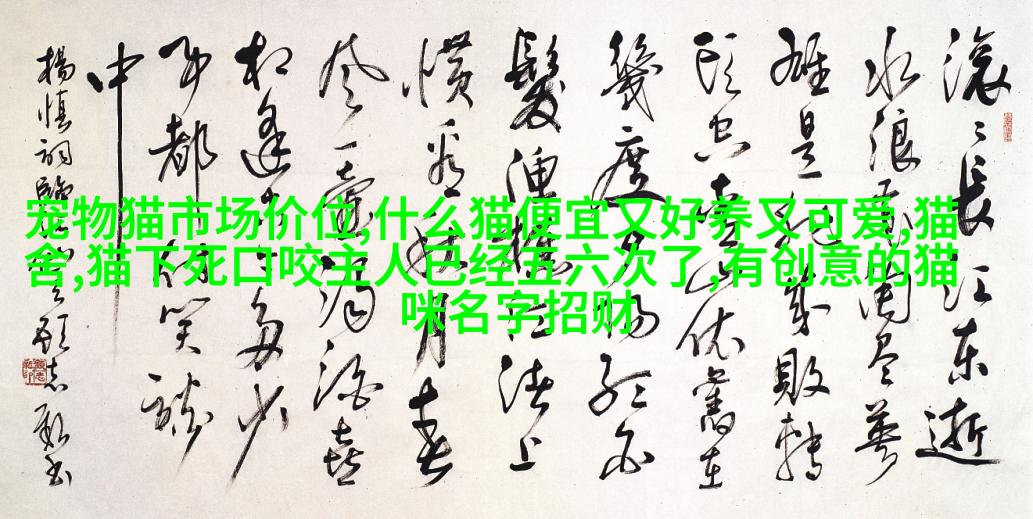 宠物猫市场价位,什么猫便宜又好养又可爱,猫
舍,猫下死口咬主人已经五六次了,有创意的猫
咪名字招财
滚〻長江东逝
水浪花淘尽英
雄是非成敗轉
頭空青山依舊在
幾度夕陽红白
髮漁樵江渚上
慣看秋月春
風一壶濁酒喜
相逢古今多少
事都付笑談
中
楊慎詞臨江仙